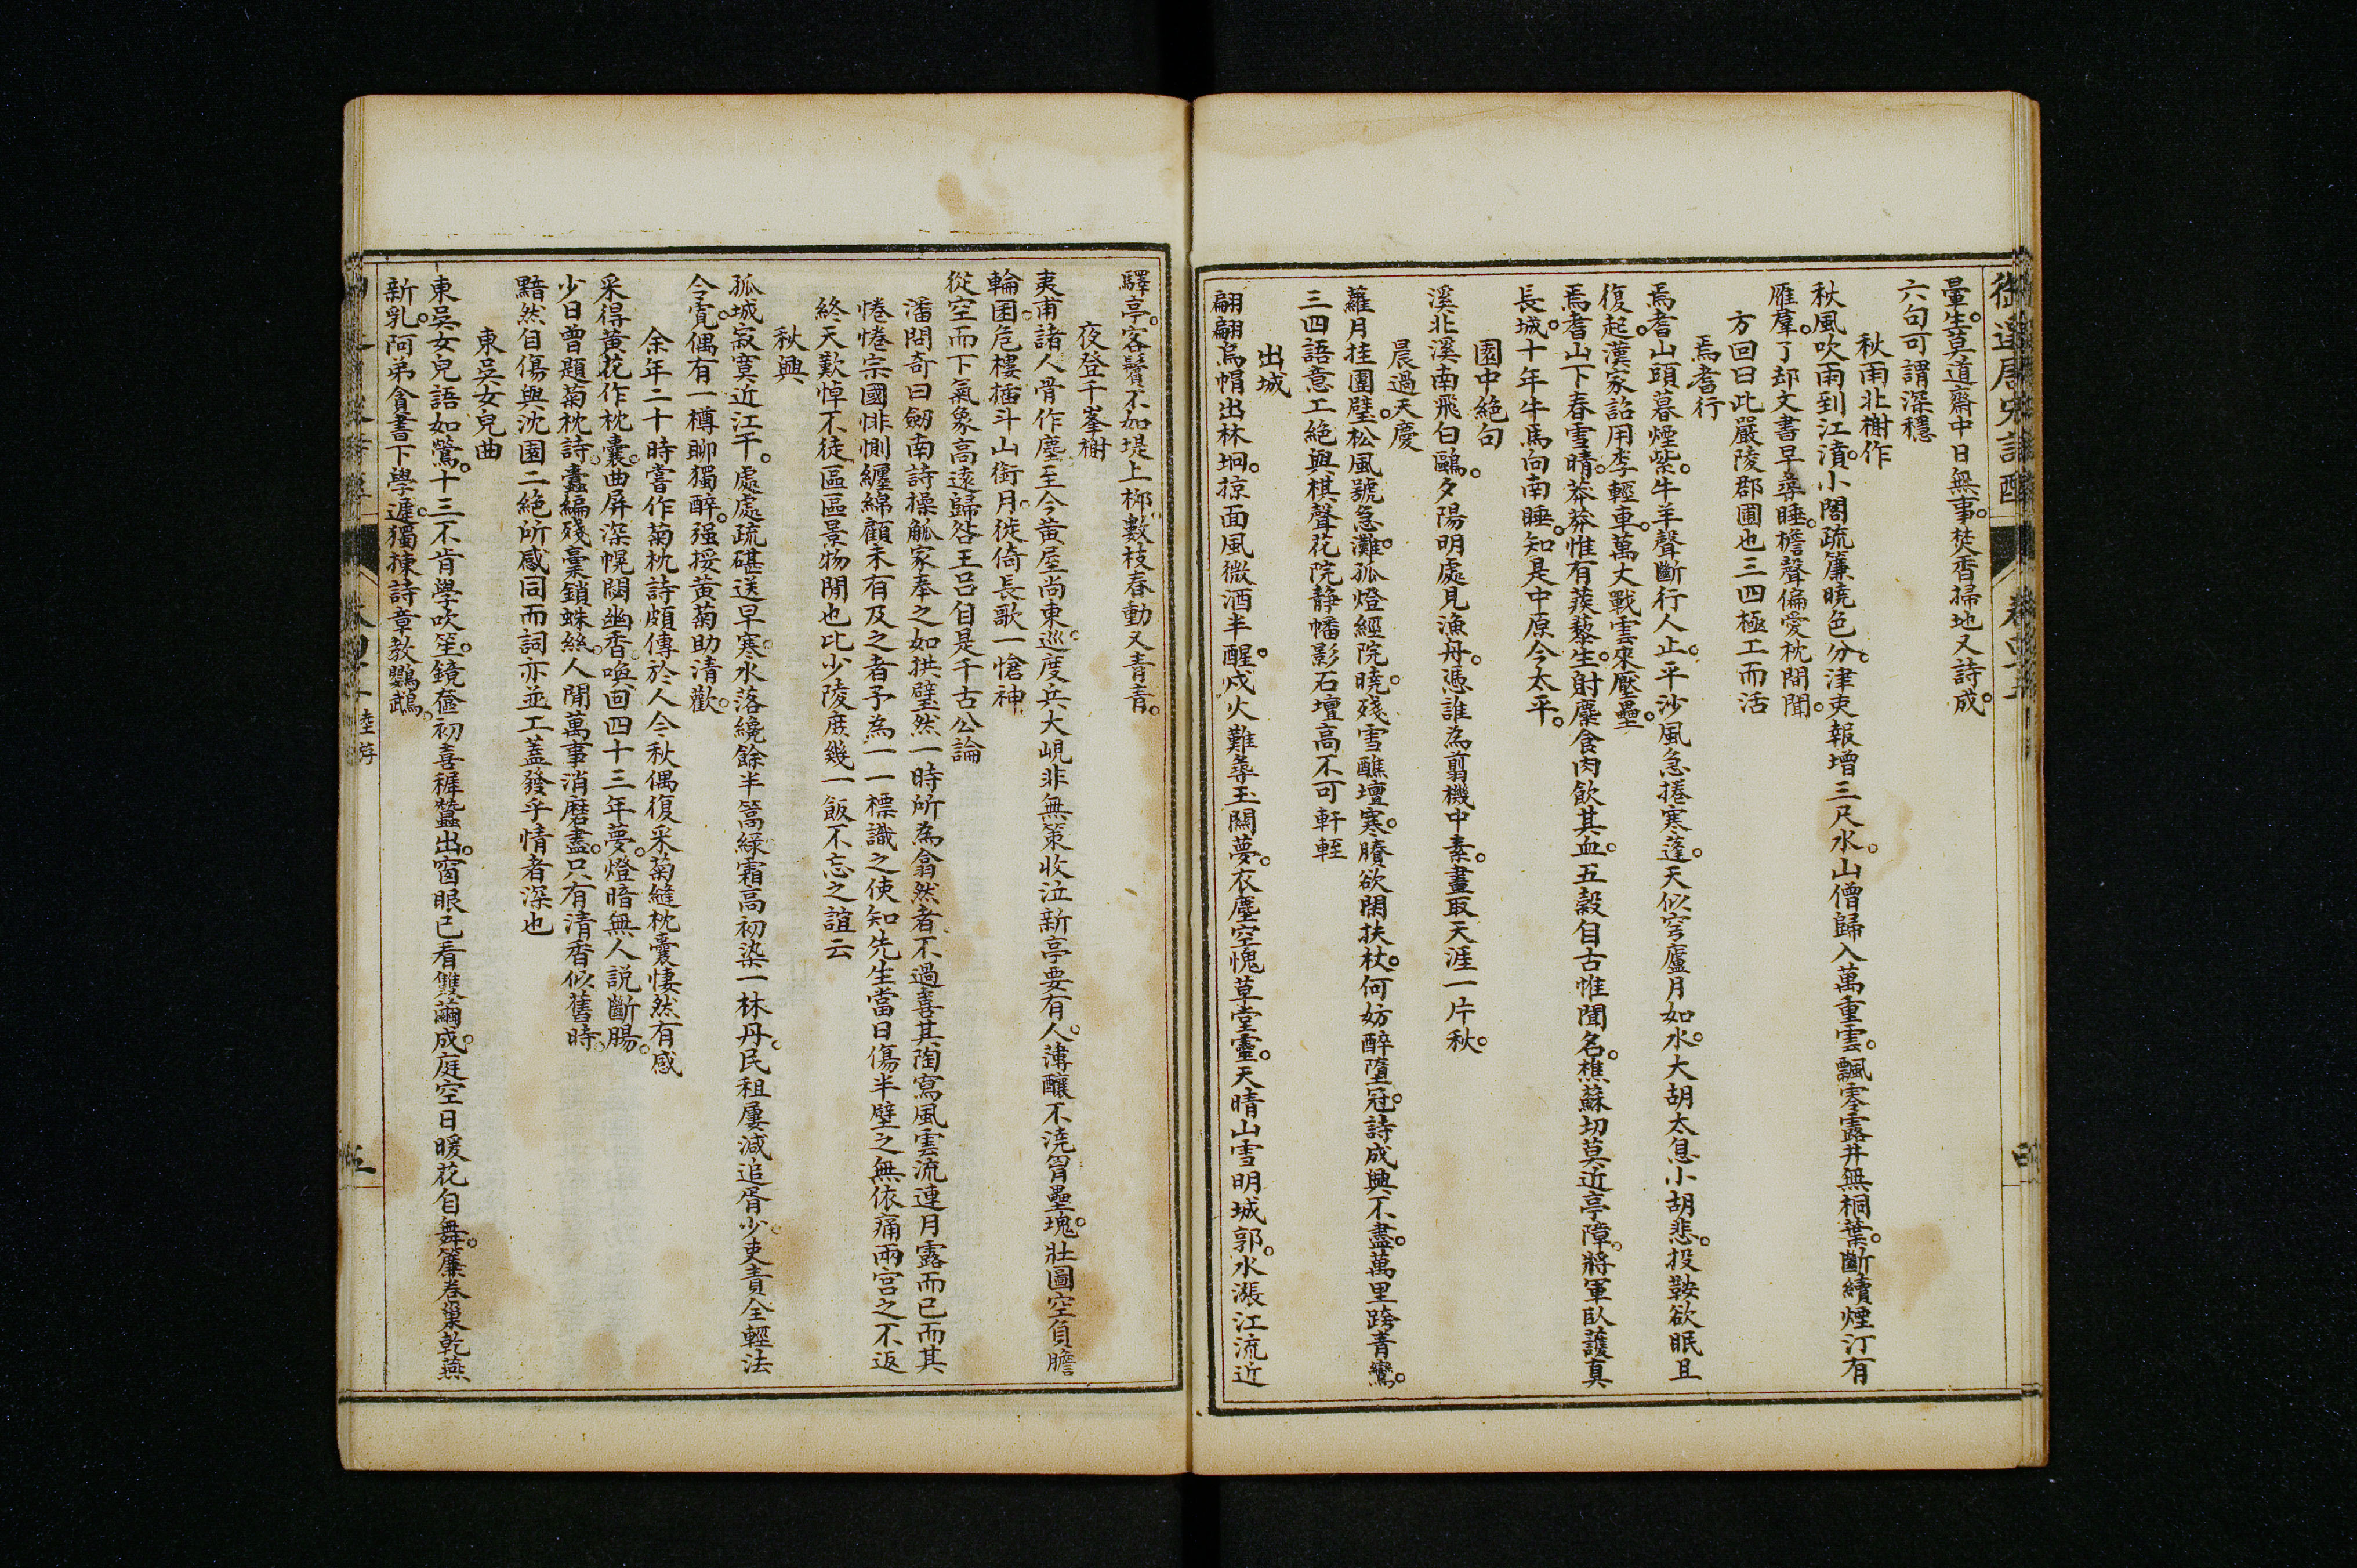 御選唐宋詩醇 卷四十
暈生莫道齋中日無事焚香掃地又詩成
六句可謂深穩
秋雨北榭作
秋風吹雨到江濆小閣疏簾曉色分津吏報增三尺水山僧歸入萬重雲飄零露井無桐葉斷續煙汀有
雁羣了却文書早尋睡檐聲偏愛枕間聞
方回曰此嚴陵郡圃也三四極工而活
焉耆行
焉耆山頭暮煙紫牛羊聲斷行人止平沙風急捲寒蓬天似穹廬月如水大胡太息小胡悲投鞍欲眠且
復起漢家詔用李輕車萬丈戰雲來壓壘
焉耆山下春雪晴莽莽惟有蒺藜生射麋食肉飲其血五穀自古惟聞名樵蘇切莫近亭障將軍臥護真
長城十年牛馬向南睡知是中原今太平
園中絶句
溪北溪南飛白鷗夕陽明處見漁舟憑誰為翦機中素畫取天涯一片秋
晨過天慶
蘿月挂團璧松風號急灘孤燈經院曉殘雪醮壇寒賸欲閑扶杖何妨醉墮冠詩成興不盡萬里跨青鸞
三四語意工絶與棋聲花院静幡影石壇高不可軒輊
出城
翩翩烏帽出林坰掠面風微酒半醒戍火難尋玉關夢衣塵空愧草堂靈天晴山雪明城郭水漲江流近
驛亭客鬢不如堤上栁數枝春動又青青
夜登千峯榭
夷甫諸人骨作塵至今黄屋尚東巡度兵大峴非無策收泣新亭要有人薄釀不澆胷壘塊壯圖空負膽
輪囷危樓插斗山銜月徙倚長歌一愴神
從空而下氣象高遠歸咎王吕自是千古公論
潘問奇曰劒南詩操觚家奉之如拱璧然一時所為翕然者不過喜其陶寫風雲流連月露而已而其
惓惓宗國悱惻纏綿顧未有及之者予為一一標識之使知先生當日傷半壁之無依痛兩宫之不返
終天歎悼不徒區區景物閒也比少陵庶幾一飯不忘之誼云
秋興
孤城寂寞近江干處處疏碪送早寒水落纔餘半篙緑霜高初染一林丹民租屢減追胥少吏責全輕法
令寛偶有一樽聊獨醉强挼黄菊助清歡
余年二十時嘗作菊枕詩頗傳於人今秋偶復采菊縫枕囊悽然有感
采得黄花作枕囊曲屏深幌閟幽香喚回四十三年夢燈暗無人説斷腸
少日曾題菊枕詩蠹編殘稾鎖蛛絲人閒萬事消磨盡只有清香似舊時
黯然自傷與沈園二絶所感同而詞亦並工蓋發乎情者深也
東吳女兒曲
東吳女兒語如鶯十三不肯學吹笙鏡奩初喜穉蠶出窗眼已看雙繭成庭空日暖花自舞簾卷巢乾燕
新乳阿弟貪書下學遲獨揀詩章教鸚鵡
陸游